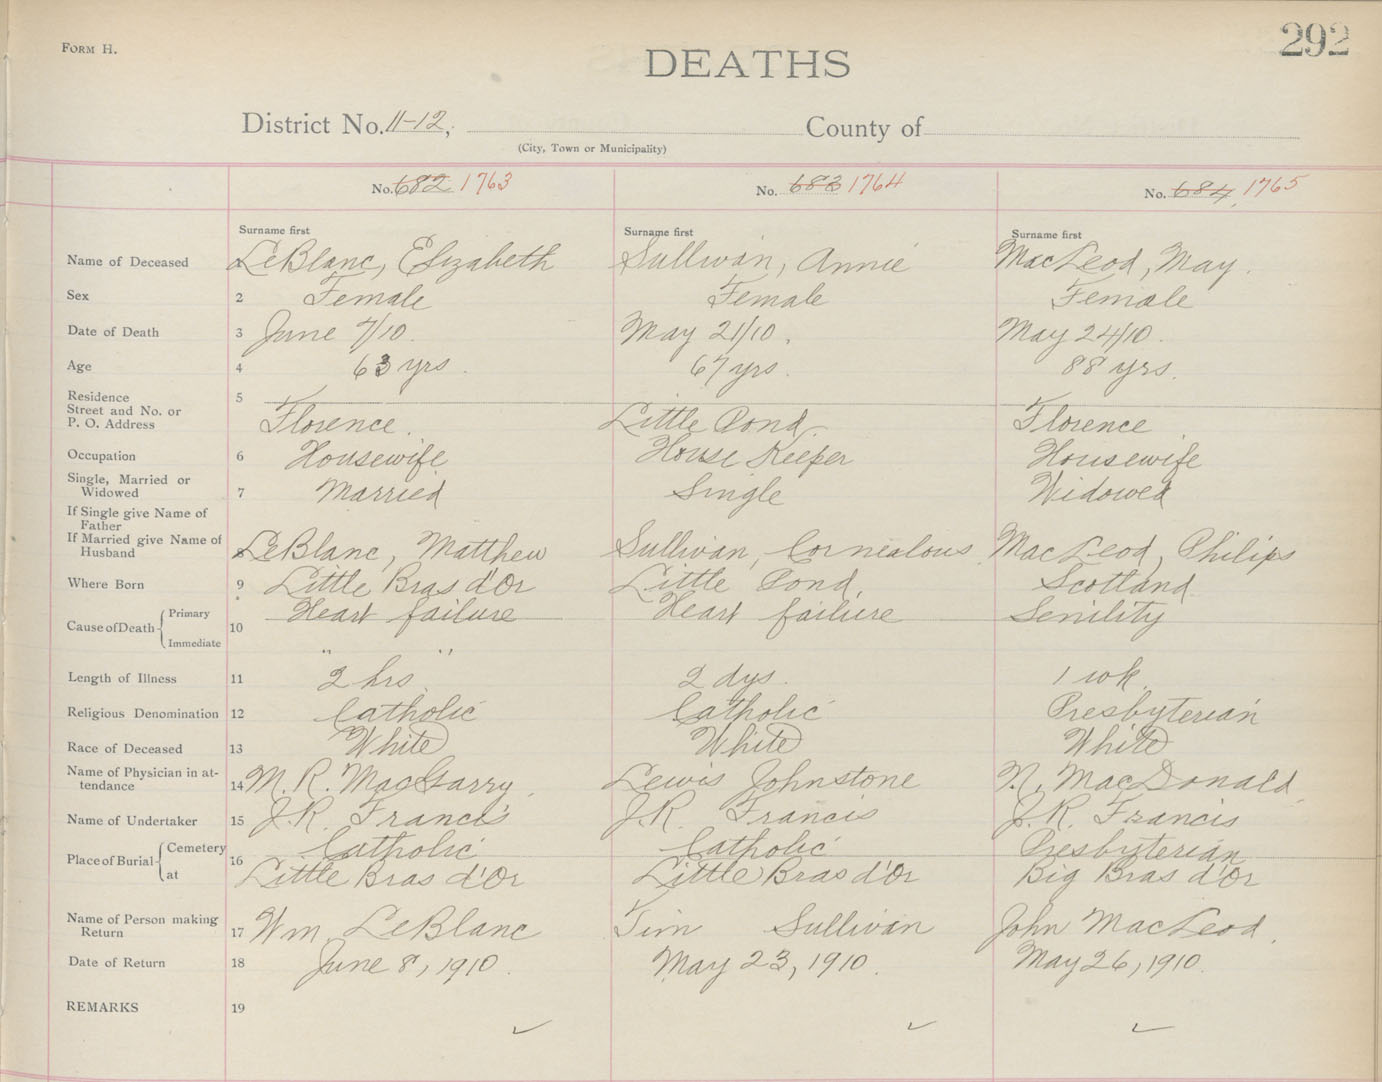 Form H.
292
DEATHS
District No. 11-12, County of
(City, Town or Municipality)
No. 682 1763 No. 683 1764 No. 684 1765
Surname first Surname first Surname first
Name of Deceased 1 LeBlanc, Elizabeth Sullivan, Annie MacLeod, May.
Sex 2 Female Female Female
Date of Death 3 June 7/10. May 21/10. May 24/10.
Age 4 63 yrs. 67 yrs. 88 yrs.
Residence 5
Street and No. or
P. O. Address Florence. Little Pond Florence
Occupation 6 Housewife House Keeper Housewife
Single, Married or
Widowed 7 Married Single Widowed
If Single give Name of
Father
If Married give Name of
Husband 8 LeBlanc, Matthew Sullivan, Cornealous MacLeod, Philips
Where Born 9 Little Bras d'Or Little Pond, Scotland
Cause of Death Primary 10 Heart failure Heart failure Senility
Immediate " "
Length of Illness 11 2 hrs. 2 dys. 1 wk.
Religious Denomination 12 Catholic Catholic Presbyterian
Race of Deceased 13 White White White
Name of Physician in at-
tendance 14 M. R. MacGarry. Lewis Johnstone N. MacDonald
Name of Undertaker 15 J.R. Francis J.R. Francis J.R. Francis
Place of Burial Cemetery 16 Catholic Catholic Presbyterian
at Little Bras d'Or Little Bras d'Or Big Bras d'Or
Name of Person making
Return 17 Wm LeBlanc Tim Sullivan John MacLeod.
Date of Return 18 June 8, 1910. May 23, 1910. May 26, 1910.
REMARKS 19